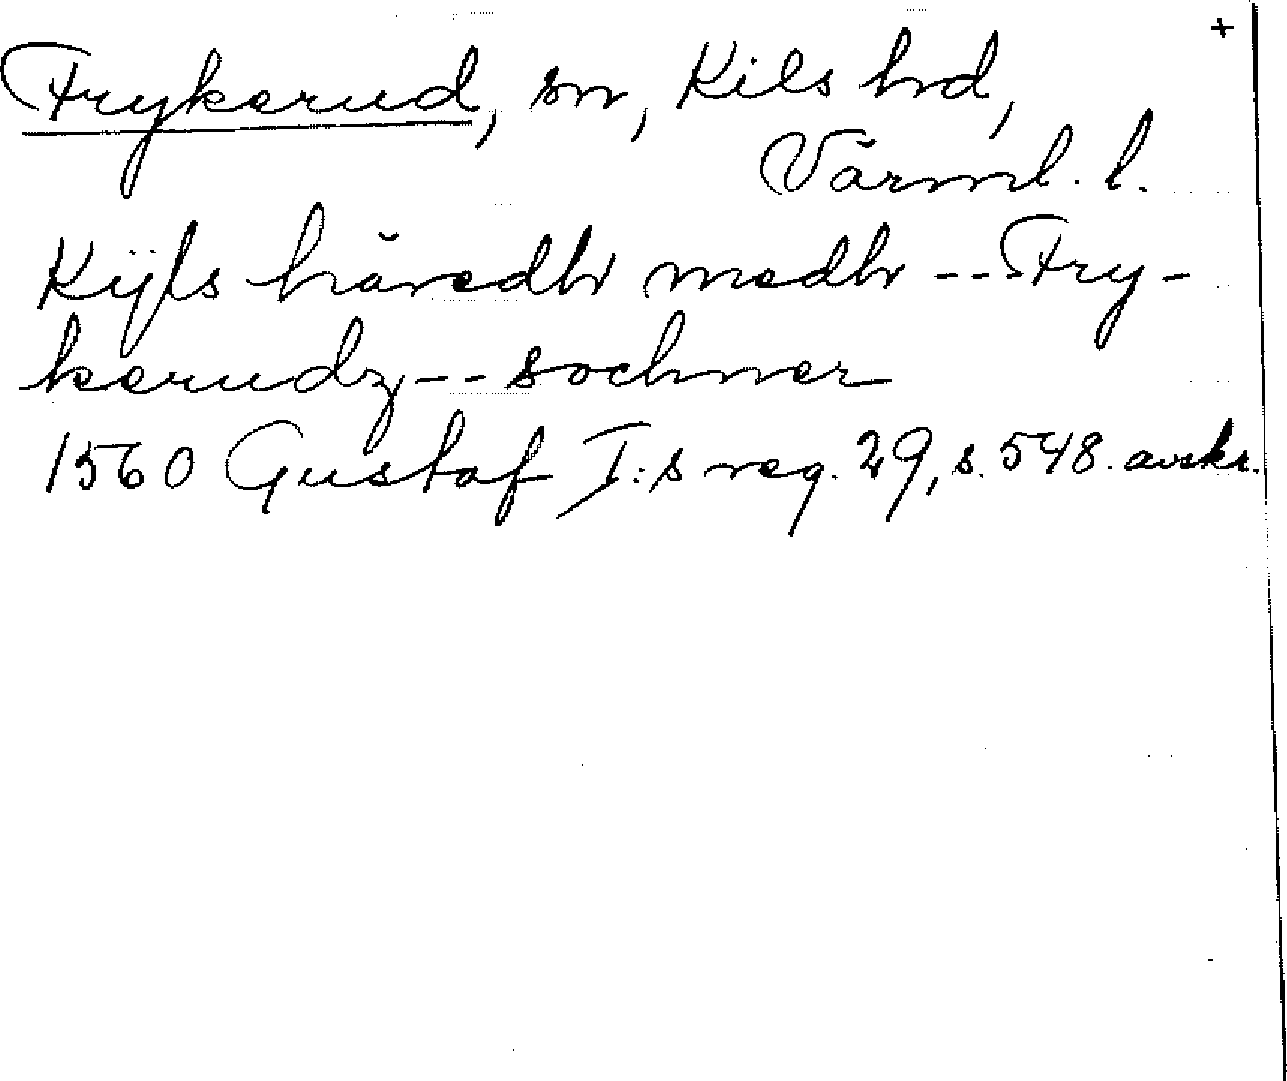 +
Frykerud, sn, Kils hd,
Värml. l.
Kijls häredh medh -- Fry-
kerudz -- sochner
1560 Gustaf I:s reg. 29, s. 548. avskr.